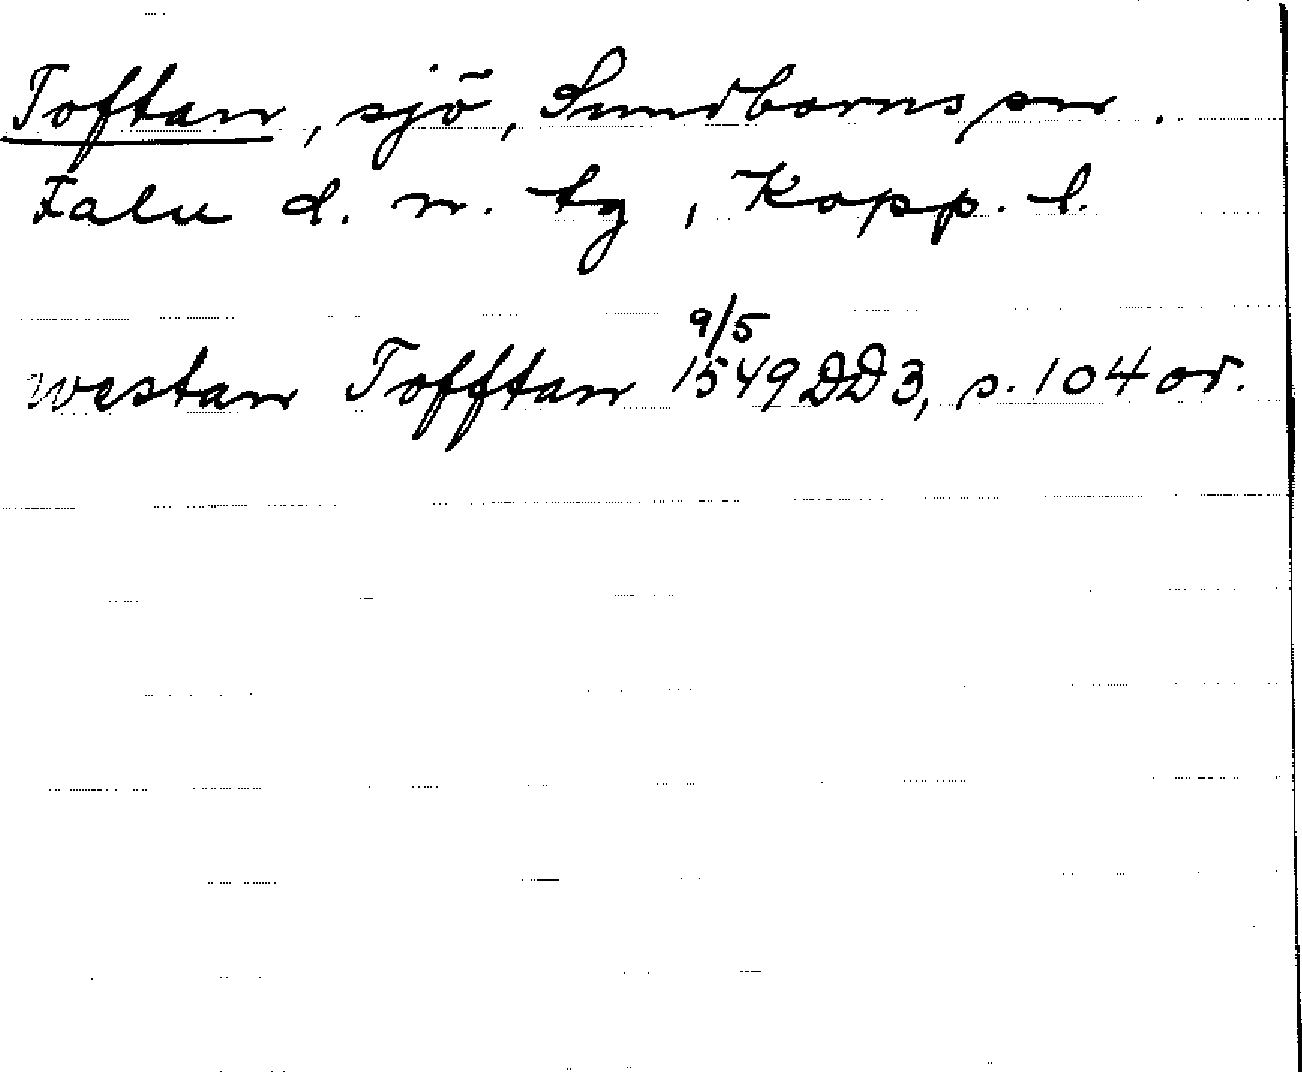 Toftan, sjö, Sundborns sn.
Falu d. n. tg, Kopp. l.
westan Tofftan 9/5 1549 DD 3, s. 104 or.